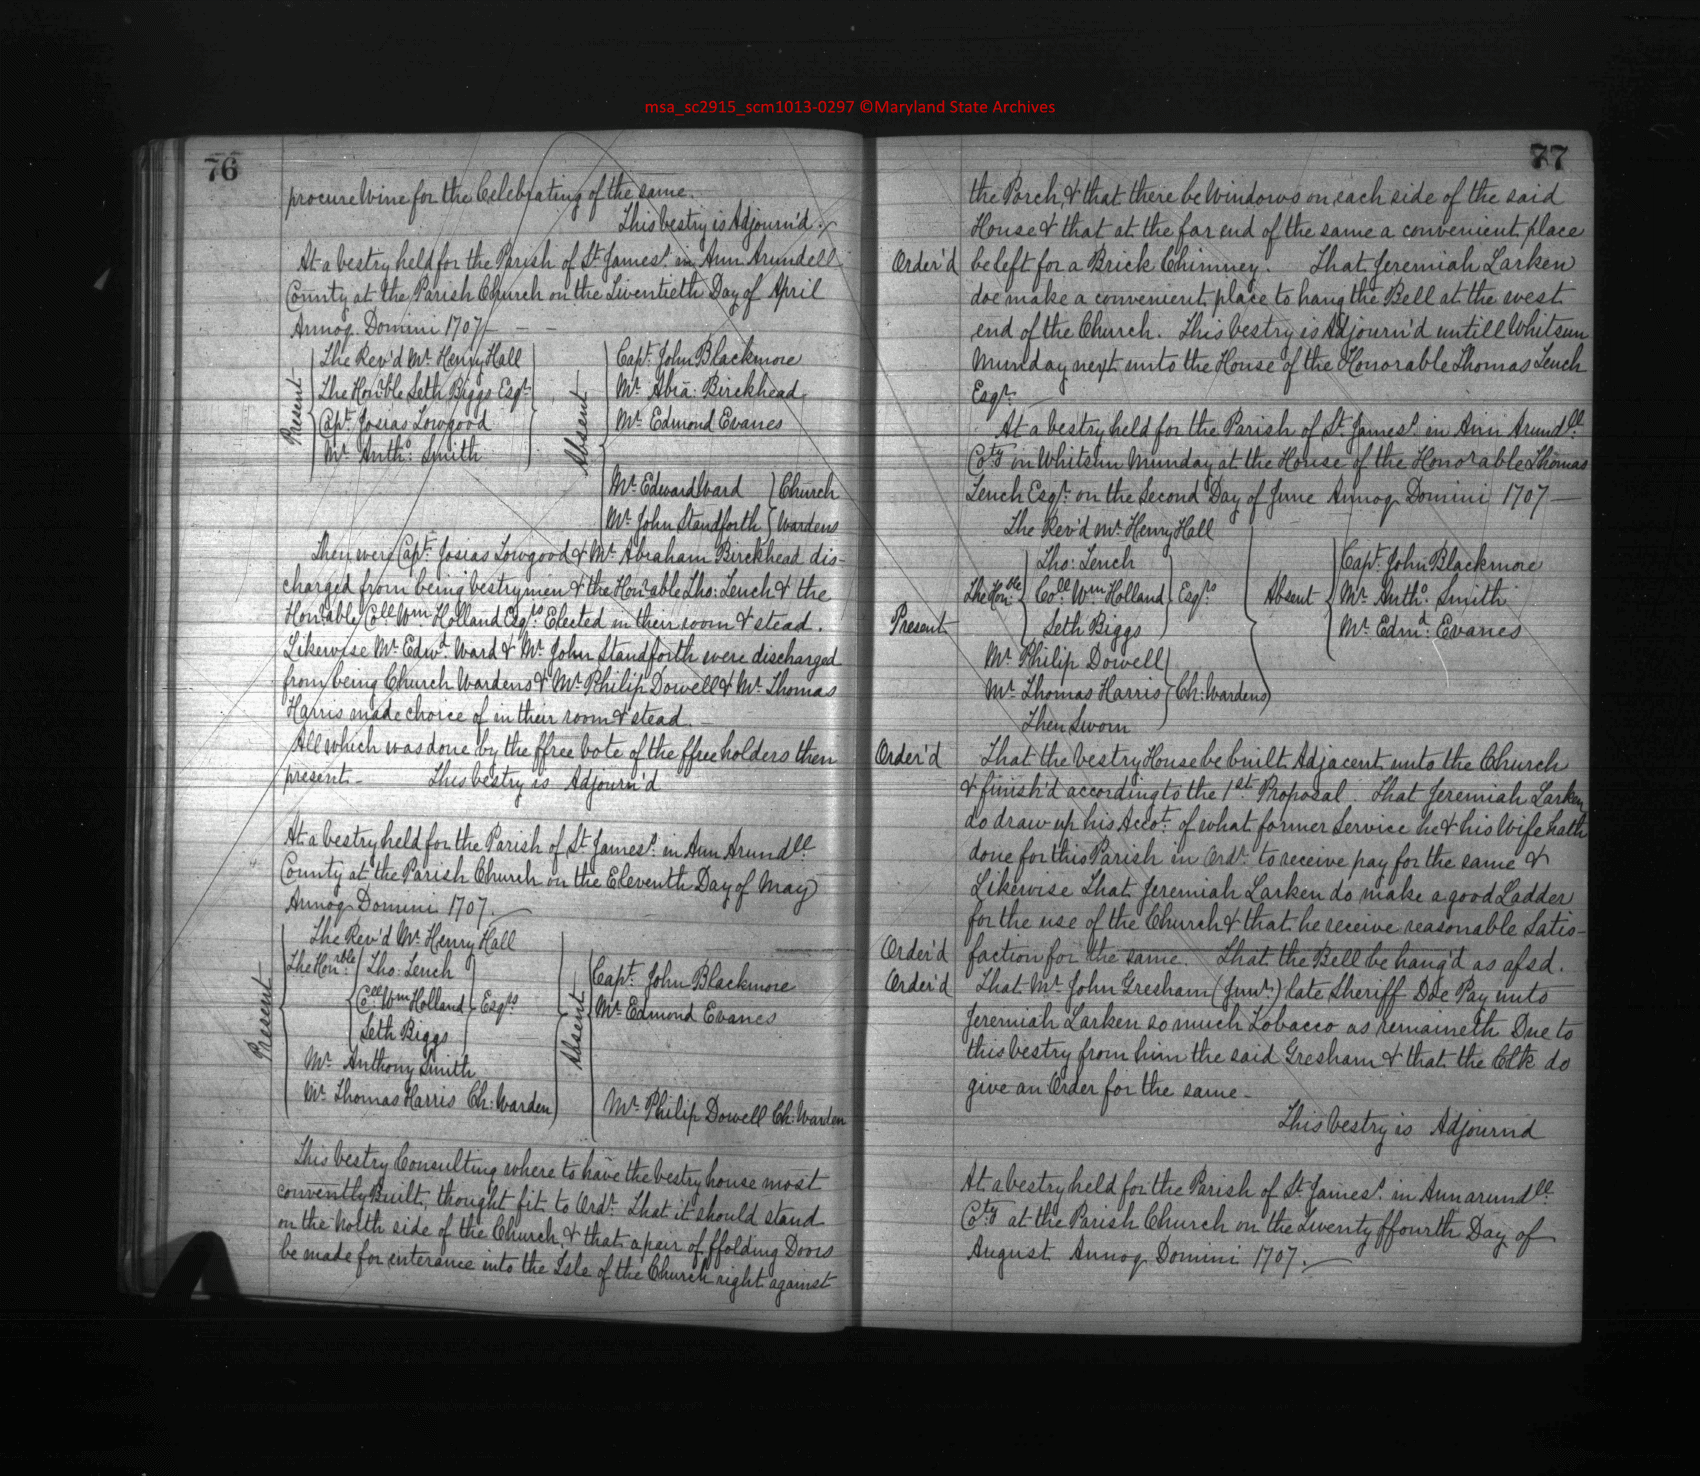 msa_sc2915_scm1013-0297 ©Maryland State Archives
76
procure Wine for the Celebrating of the same.
This Vestry is Adjourn'd.
At a Vestry held for the Parish of St. James's. in Ann Arundell
County at the Parish Church on the Twentieth Day of April
Annoq. Domini 1707
Present
The Rev'd Mr. Henry Hall
The Honrble Seth Biggs Esqr.
Capt. Josias Towgood
Mr. Antho: Smith
Absent
Capt. John Blackmore
Mr. Abra: Birckhead
Mr. Edmond Evanes
Mr. Edward Ward } Church
Mr. John Standforth } Wardens
Then were Capt. Josias Towgood & Mr. Abraham Birckhead dis-
charged from being Vestrymen & the Honrable Tho: Tench & the
Honrable Coll Wm Holland Esqrs Elected in their room & stead.
Likewise Mr. Edwd. Ward & Mr. John Standforth were discharged
from being Church Wardens & Mr. Philip Dowell & Mr. Thomas
Harris made choice of in their room & stead.
All which was done by the ffree Vote of the ffreeholders then
present - This Vestry is Adjourn'd
At a Vestry held for the Parish of St. James's. in Ann Arundll.
County at the Parish Church on the Eleventh Day of May
Annoq Domini 1707.
Present
The Rev'd Mr. Henry Hall
The Honrble. { Tho: Tench
Coll Wm Holland } Esqrs
Seth Biggs
Mr. Anthony Smith
Mr. Thomas Harris Ch: Warden
Absent
Capt. John Blackmore
Mr. Edmond Evanes
Mr. Philip Dowell Ch: Warden
This Vestry Consulting where to have the Vestry house most
convently Built, thought fit to Ordr. That it should stand
on the North side of the Church, & that a pair of ffolding Doors
be made for enterance into the Isle of the Church right against
77
the Porch, & that there be Windows on each side of the said
House & that at the far end of the same a convenient place
Order'd be left for a Brick Chimney. That Jeremiah Larken
doe make a convenient place to hang the Bell at the west
end of the Church. This Vestry is Adjourn'd untill Whitsun
Munday next unto the House of the Honorable Thomas Tench
Esqr.
At a Vestry held for the Parish of St. James's in Ann Arundll.
Coty on Whitsun Munday at the House of the Honorable Thomas
Tench Esqr. on the Second Day of June Annoq Domini 1707
Present
The Rev'd Mr. Henry Hall
The Honrble. { Tho: Tench
Coll Wm Holland } Esqrs
Seth Biggs
Mr. Philip Dowell
Mr. Thomas Harris } Ch: Wardens
Then Sworn
Absent
Capt. John Blackmore
Mr. Antho. Smith
Mr. Edmd: Evanes
Order'd That the Vestry House be built Adjacent unto the Church
& finish'd according to the 1st. Proposal. That Jeremiah Larken
do draw up his Accot. of what former Service he & his Wife hath
done for this Parish in Ordr. to receive pay for the same &
Likewise That Jeremiah Larken do make a good Ladder
for the use of the Church & that he receive reasonable Satis-
Order'd faction for the same. That the Bell be hang'd as afsd.
Order'd That Mr. John Gresham (Junr.) late Sheriff Doe Pay unto
Jeremiah Larken so much Tobacco as remaineth Due to
this Vestry from him the said Gresham & that the Clk do
give an Order for the same -
This Vestry is Adjournd
At a Vestry held for the Parish of St. James's. in Annarundll.
Coty at the Parish Church on the Twenty ffourth Day of
August Annoq Domini 1707.